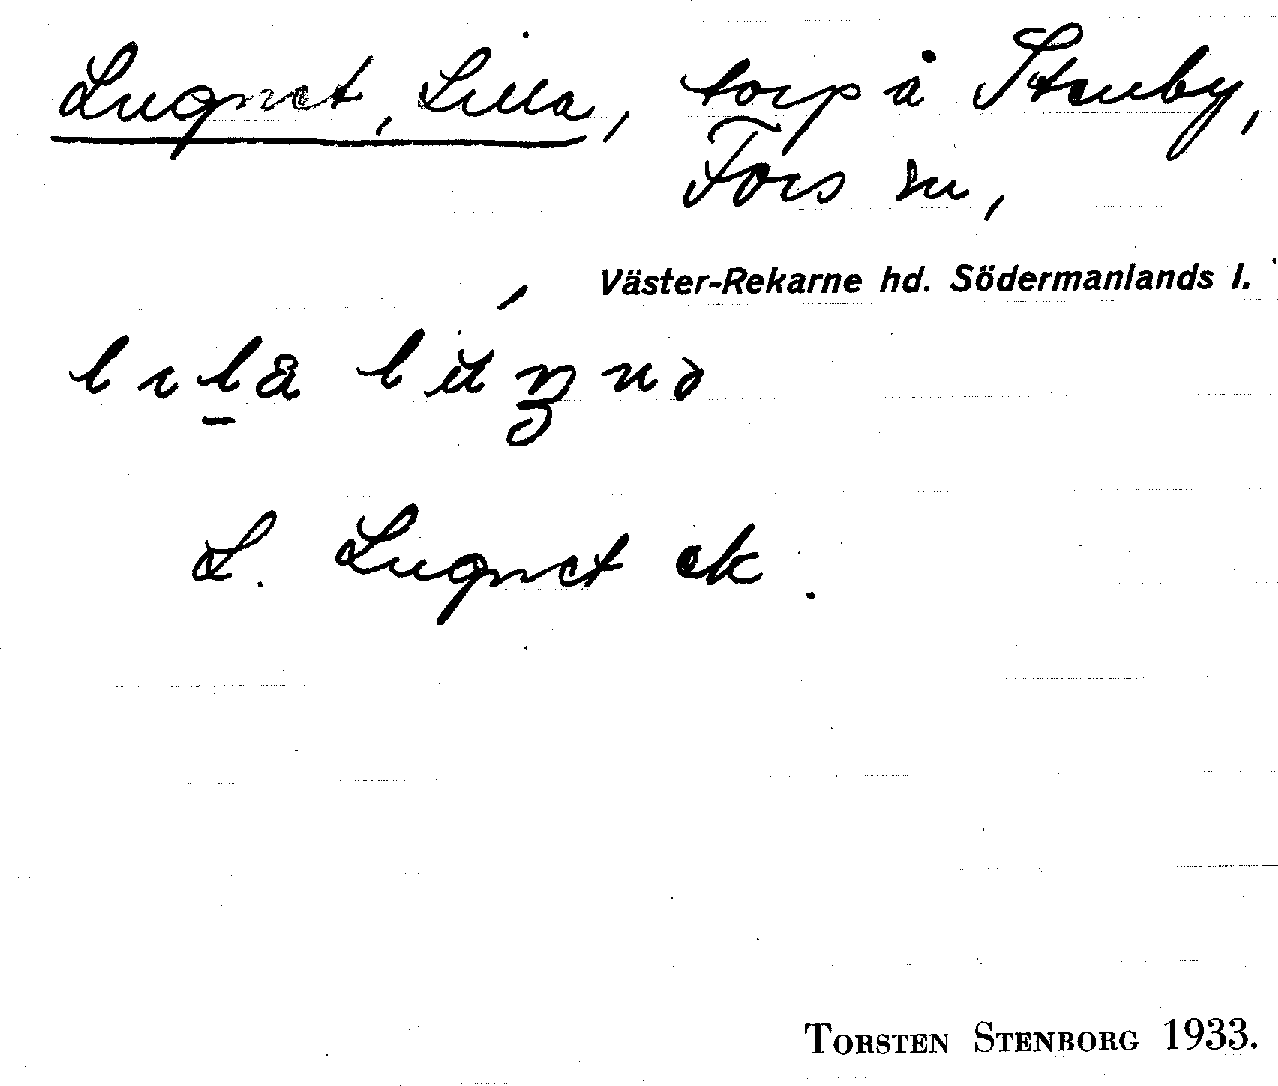 Lugnet, Lilla, torp å Stenby,
Fors sn,
Väster-Rekarne hd. Södermanlands l.
L. Lugnet ek.
TORSTEN STENBORG 1933.